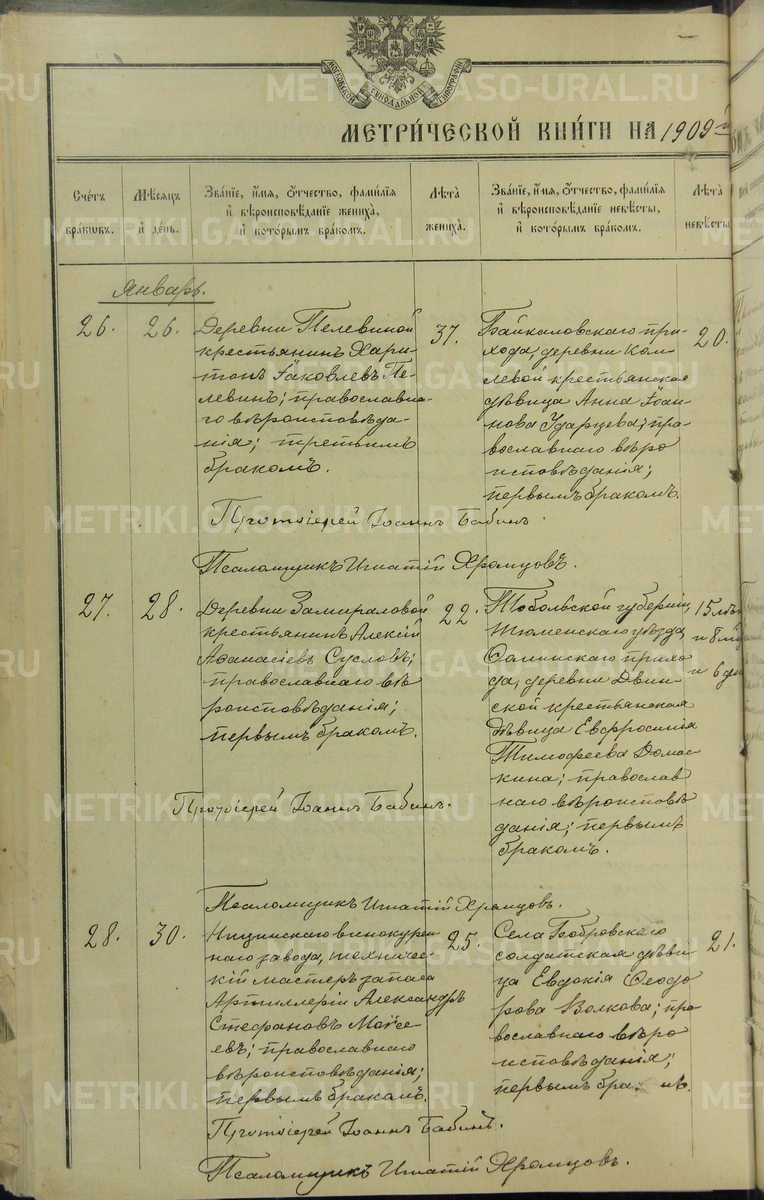 МОСКОВСКОЙ СѴНОДАЛЬНОЙ ТИПОГРАФІИ
МЕТРИ́ЧЕСКОЙ КНИ́ГИ НА 1909 й
Сче́тъ бра́кωвъ.
Мѣ́сяцъ и҆ де́нь.
Зва́нїе, и҆́мя, ѻ҆́тчество, фами́лїя
и҆ вѣроисповѣ́данїе жениха̀,
и҆ кото́рымъ бра́комъ.
Лѣ́та жениха̀.
Зва́нїе, и҆́мя, ѻ҆́тчество, фами́лїя
и҆ вѣроисповѣ́данїе невѣ́сты,
и҆ кото́рымъ бра́комъ.
Лѣ́та невѣ́сты
Январь.
26.
26.
Деревни Пелевиной
крестьянинъ Хари-
тонъ Іаковлевъ Пе-
левинъ; православна-
го вѣроисповѣда-
нія; третьимъ
бракомъ.
37.
Байкаловскаго при-
хода, деревни Ком-
левой крестьянская
дѣвица Анна Іоан-
нова Ударцева; пра-
вославнаго вѣро
исповѣданія;
первымъ бракомъ.
20.
Протоіерей Іоаннъ Бабинъ.
Псаломщикъ Игнатій Храмцовъ.
27.
28.
Деревни Замираловой
крестьянинъ Алексій
Аѳанасіевъ Сусловъ;
православнаго вѣ
роисповѣданія;
первымъ бракомъ.
22.
Тобольской губерніи,
Тюменскаго уѣзда,
прихо-
да, деревни Двин-
ской крестьянская
дѣвица Евфросинія
Тимофеева Домас
кина; православ
наго вѣроисповѣ
данія; первымъ
бракомъ.
15 лѣтъ
и 8 мѣс
и 6 дн
Протоіерей Іоаннъ Бабинъ.
Псаломщикъ Игнатій Храмцовъ.
28.
30.
Ницинскаго винокурен
наго завода, техничес-
кій мастеръ запаса
Артиллеріи Александръ
Стефановъ Моисе
евъ; православнаго
вѣроисповѣданія;
первымъ бракомъ.
25.
Села Бобровскаго
солдатская дѣви
ца Евдокія Ѳеодо
рова Волкова; пра
вославнаго вѣро
исповѣданія;
первымъ
21.
Протоіерей Іоаннъ Бабинъ.
Псаломщикъ Игнатій Храмцовъ.
METRIKI.GASO-URAL.RU